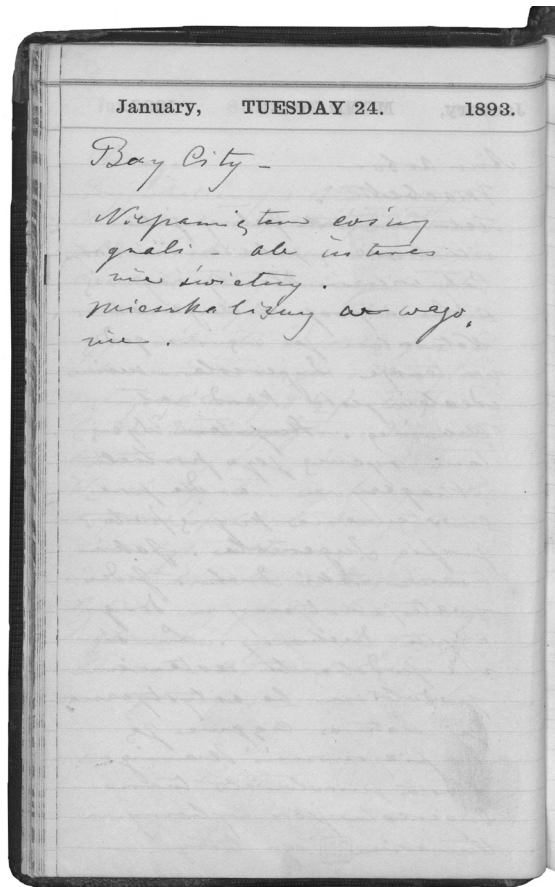 January, TUESDAY 24. 1893.
Bay City –
Niepamiętam cośmy
grali – ale interes
nie świetny.
mieszkaliśmy w wago,
nie.